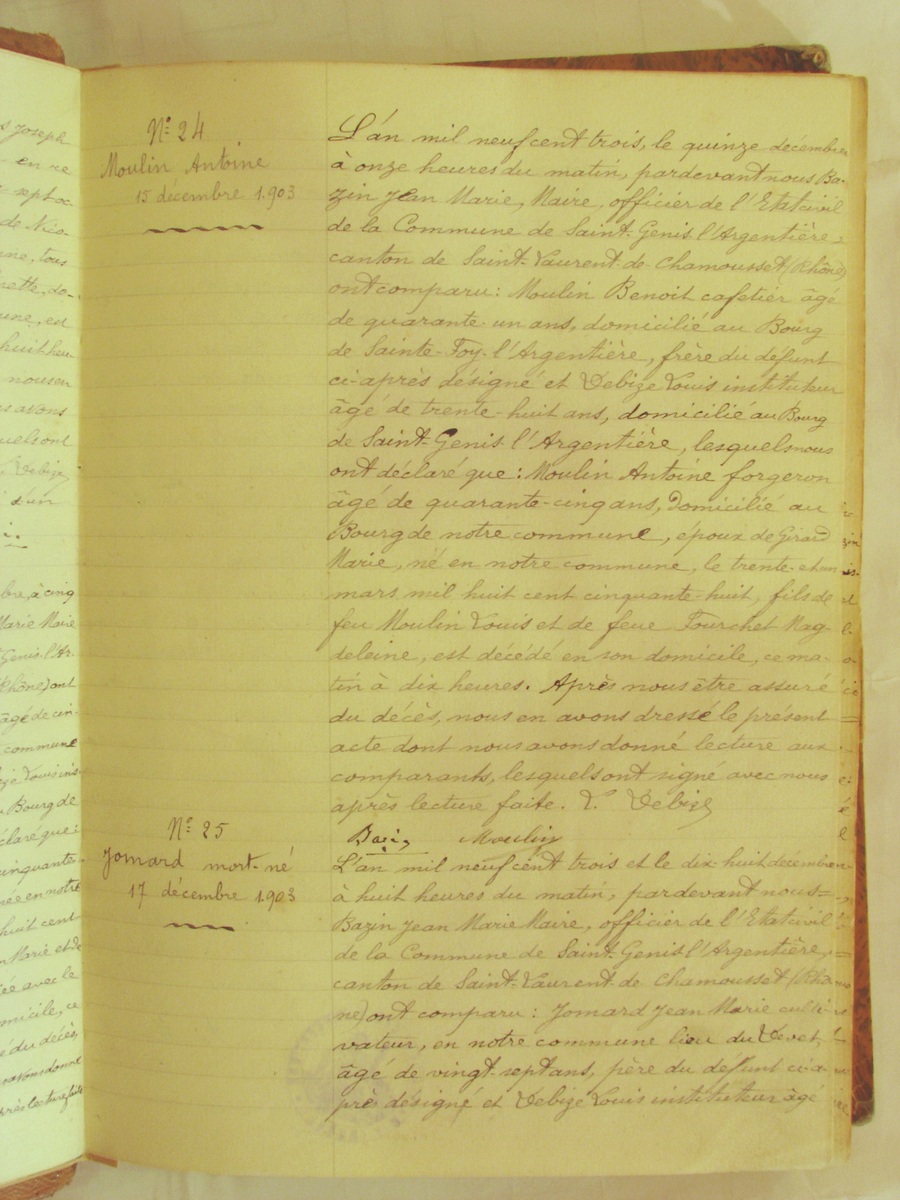 s Joseph
en re
sept oc
de Nico
nne, tous
nette, do-
une, est
huit heu
nous en
s avons
uels ont
Debize
d'un
bre, à cinq
Marie Maire
Genis l'Ar-
Rhône) ont
âgé de cin-
commune
ze Louis ins-
Bourg de
claré que:
inquante-
née en notre
huit cent
Marie et de
ée avec le
micile, ce
é du décès,
avons donné
près lecture faite
Nº 24
Moulin Antoine
15 décembre 1.903
L'an mil neuf cent trois, le quinze décembre
à onze heures du matin, pardevant nous Ba-
zin Jean Marie, Maire, officier de l'Etat civil
de la Commune de Saint-Genis l'Argentière,
canton de Saint-Laurent-de-Chamousset (Rhône)
ont comparu: Moulin Benoit cafetier âgé
de quarante-un ans, domicilié au Bourg
de Sainte-Foy-l'Argentière, frère du défunt
ci-après désigné et Debize Louis instituteur
âgé de trente-huit ans, domicilié au Bourg
de Saint-Genis l'Argentière, lesquels nous
ont déclaré que: Moulin Antoine forgeron
âgé de quarante-cinq ans, domicilié au
Bourg de notre commune, époux de Girard
Marie, né en notre commune, le trente-et-un
mars mil huit cent cinquante-huit, fils de
feu Moulin Louis et de feue Fourchet Mag-
deleine, est décédé en son domicile, ce ma-
tin à dix heures. Après nous être assuré
du décès, nous en avons dressé le présent
acte dont nous avons donné lecture aux
comparants, lesquels ont signé avec nous
après lecture faite. L. Debize
Bazin Moulin
Nº 25
Jomard mort-né
17 décembre 1.903
L'an mil neuf cent trois et le dix huit décembre
à huit heures du matin, pardevant nous=
Bazin Jean Marie Maire, officier de l'Etat civil
de la Commune de Saint-Genis l'Argentière,
canton de Saint-Laurent-de-Chamousset (Rhô-
ne) ont comparu: Jomard Jean Marie culti-
vateur, en notre commune lieu du Devet,
âgé de vingt-sept ans, père du défunt ci-a-
près désigné et Debize Louis instituteur âgé